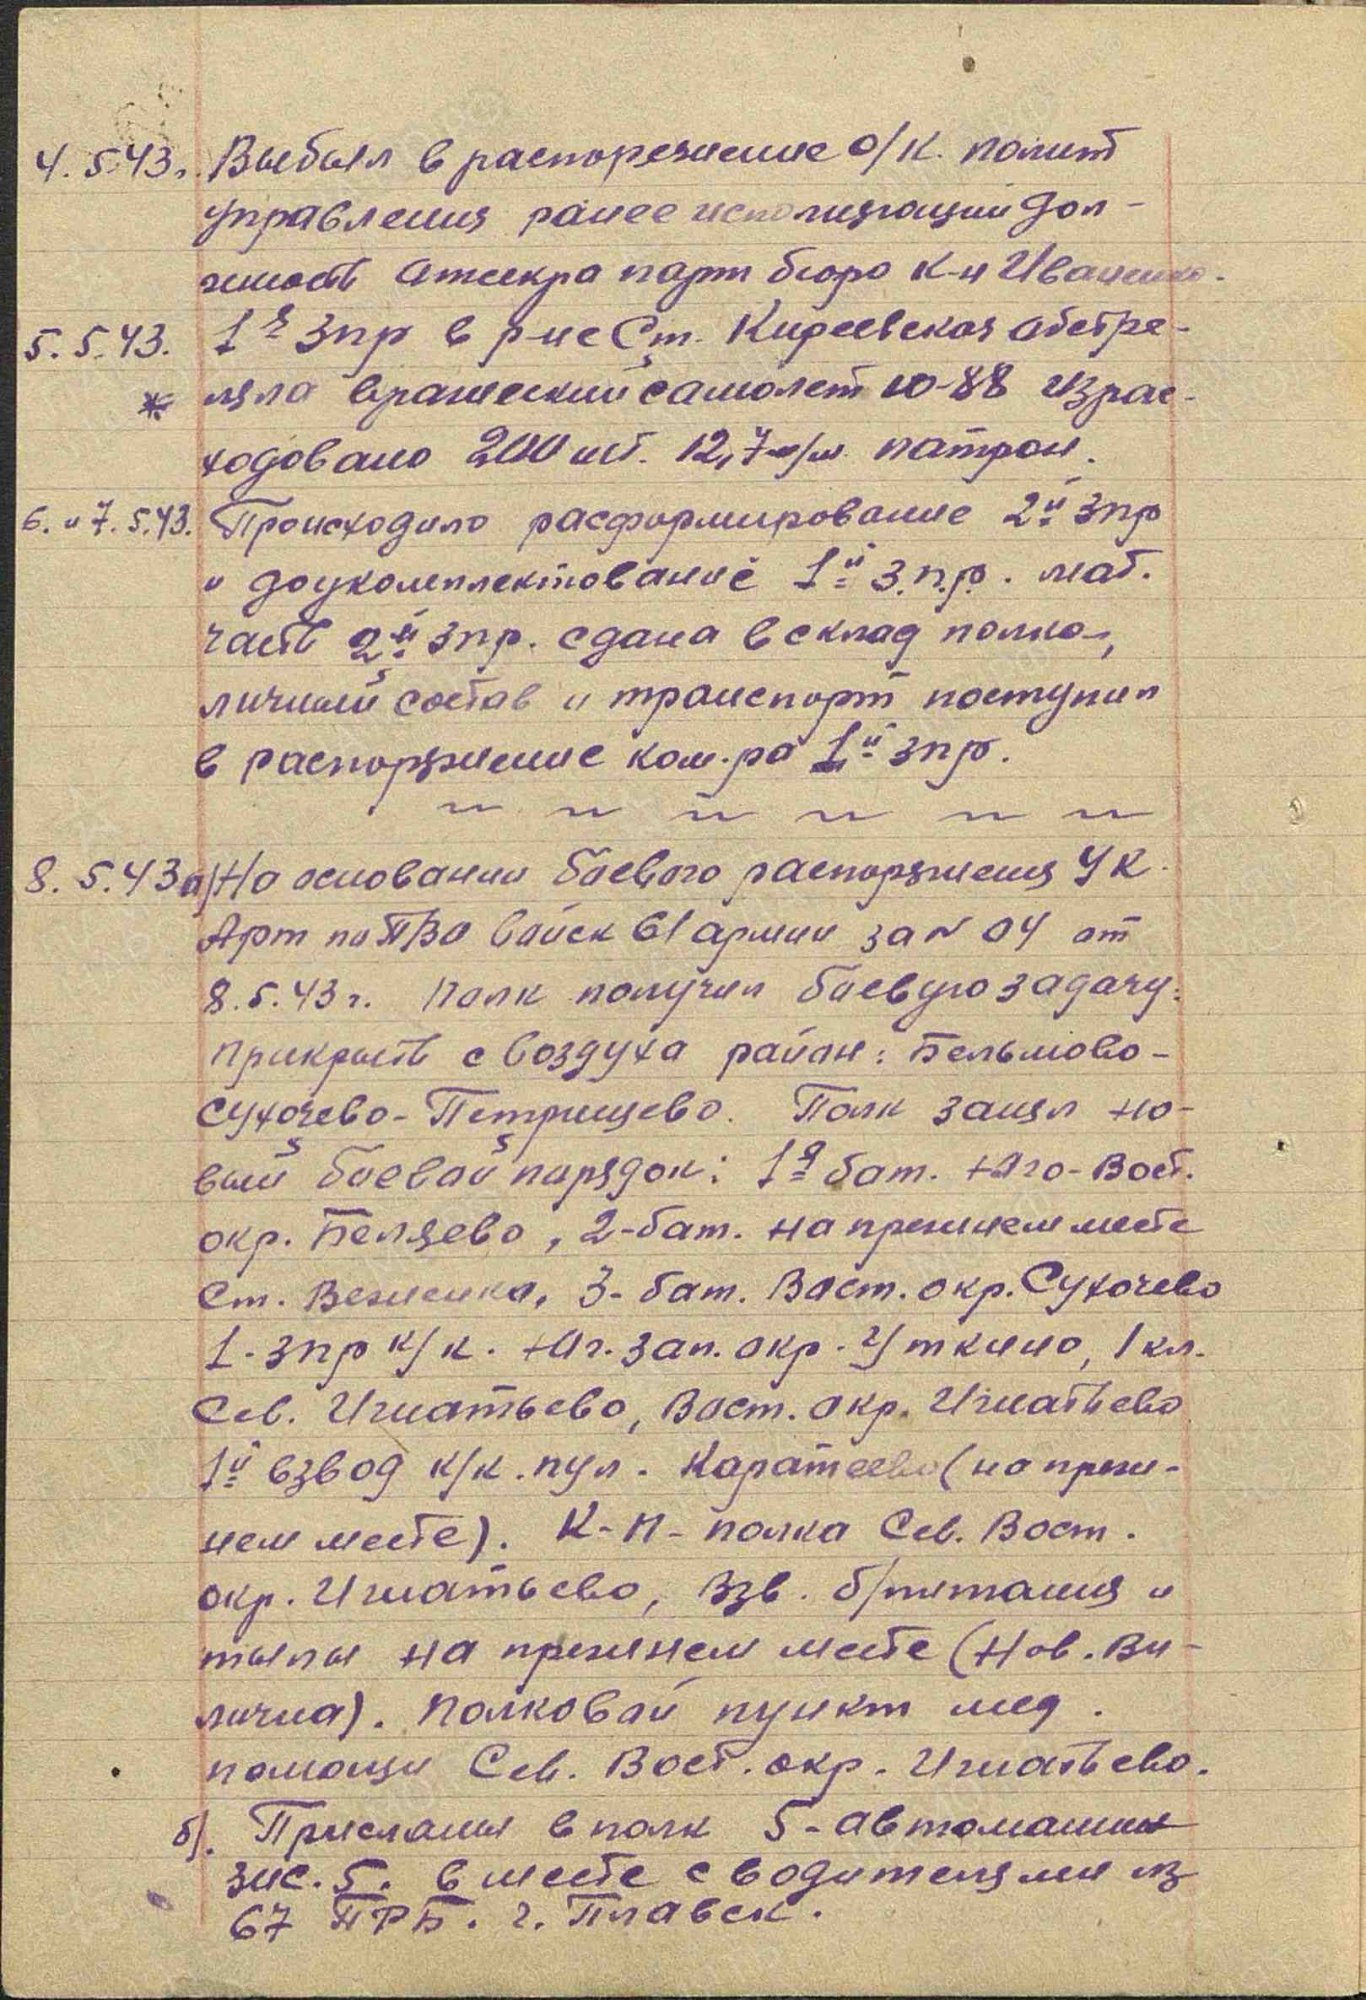 4.5.43г. Выбыл в распорезнение о/к. полит
управления ранее исполняющий дол-
жность отсекра парт бюро к-н Иваненко.
5.5.43. 1я Зпр в р-не Ст. Киреевская обстре-
ляла вражеский самолет Ю-88 израс-
ходовано 200 шт. 12,7 м/м патрон.
6. и 7.5.43. Происходило расформирование 2й Зпр
и доукомплектование 1й З.п.р. мат.
часть 2й Зпр. сдана в склад полка,
личный состав и транспорт поступил
в распоряжение ком-ра 1й зпр.
8.5.43 а) На основании боевого распоряжения УК
Арт по ПВО войск 61 армии за N 04 от
8.5.43г. Полк получил боевую задачу:
Прикрыть с воздуха район: Бельмово-
Сухочево-Петрищево. Полк занял но-
вый боевой порядок: 1я бат. Юго-Вост.
окр. Беляево, 2-бат. на прежнем месте
Ст. Веженка, 3-бат. Вост. окр. Сухочево
1-зпр к/к. Юг. зап. окр. Уткино, 1 кл.
Сев. Игнатьево, Вост. окр. Игнатьево
1й взвод к/к. пул. Каратеево (на преж-
нем месте). К-П-полка Сев. Вост.
окр. Игнатьево, Взв. б/питания и
тылы на прежнем месте (Нов. Ви-
лична). Полковой пункт мед.
помощи Сев. Вост. окр. Игнатьево.
б). Присланы в полк 5-автомашин
зис. 5. вместе с водителями из
67 ПРБ. г. Плавск.